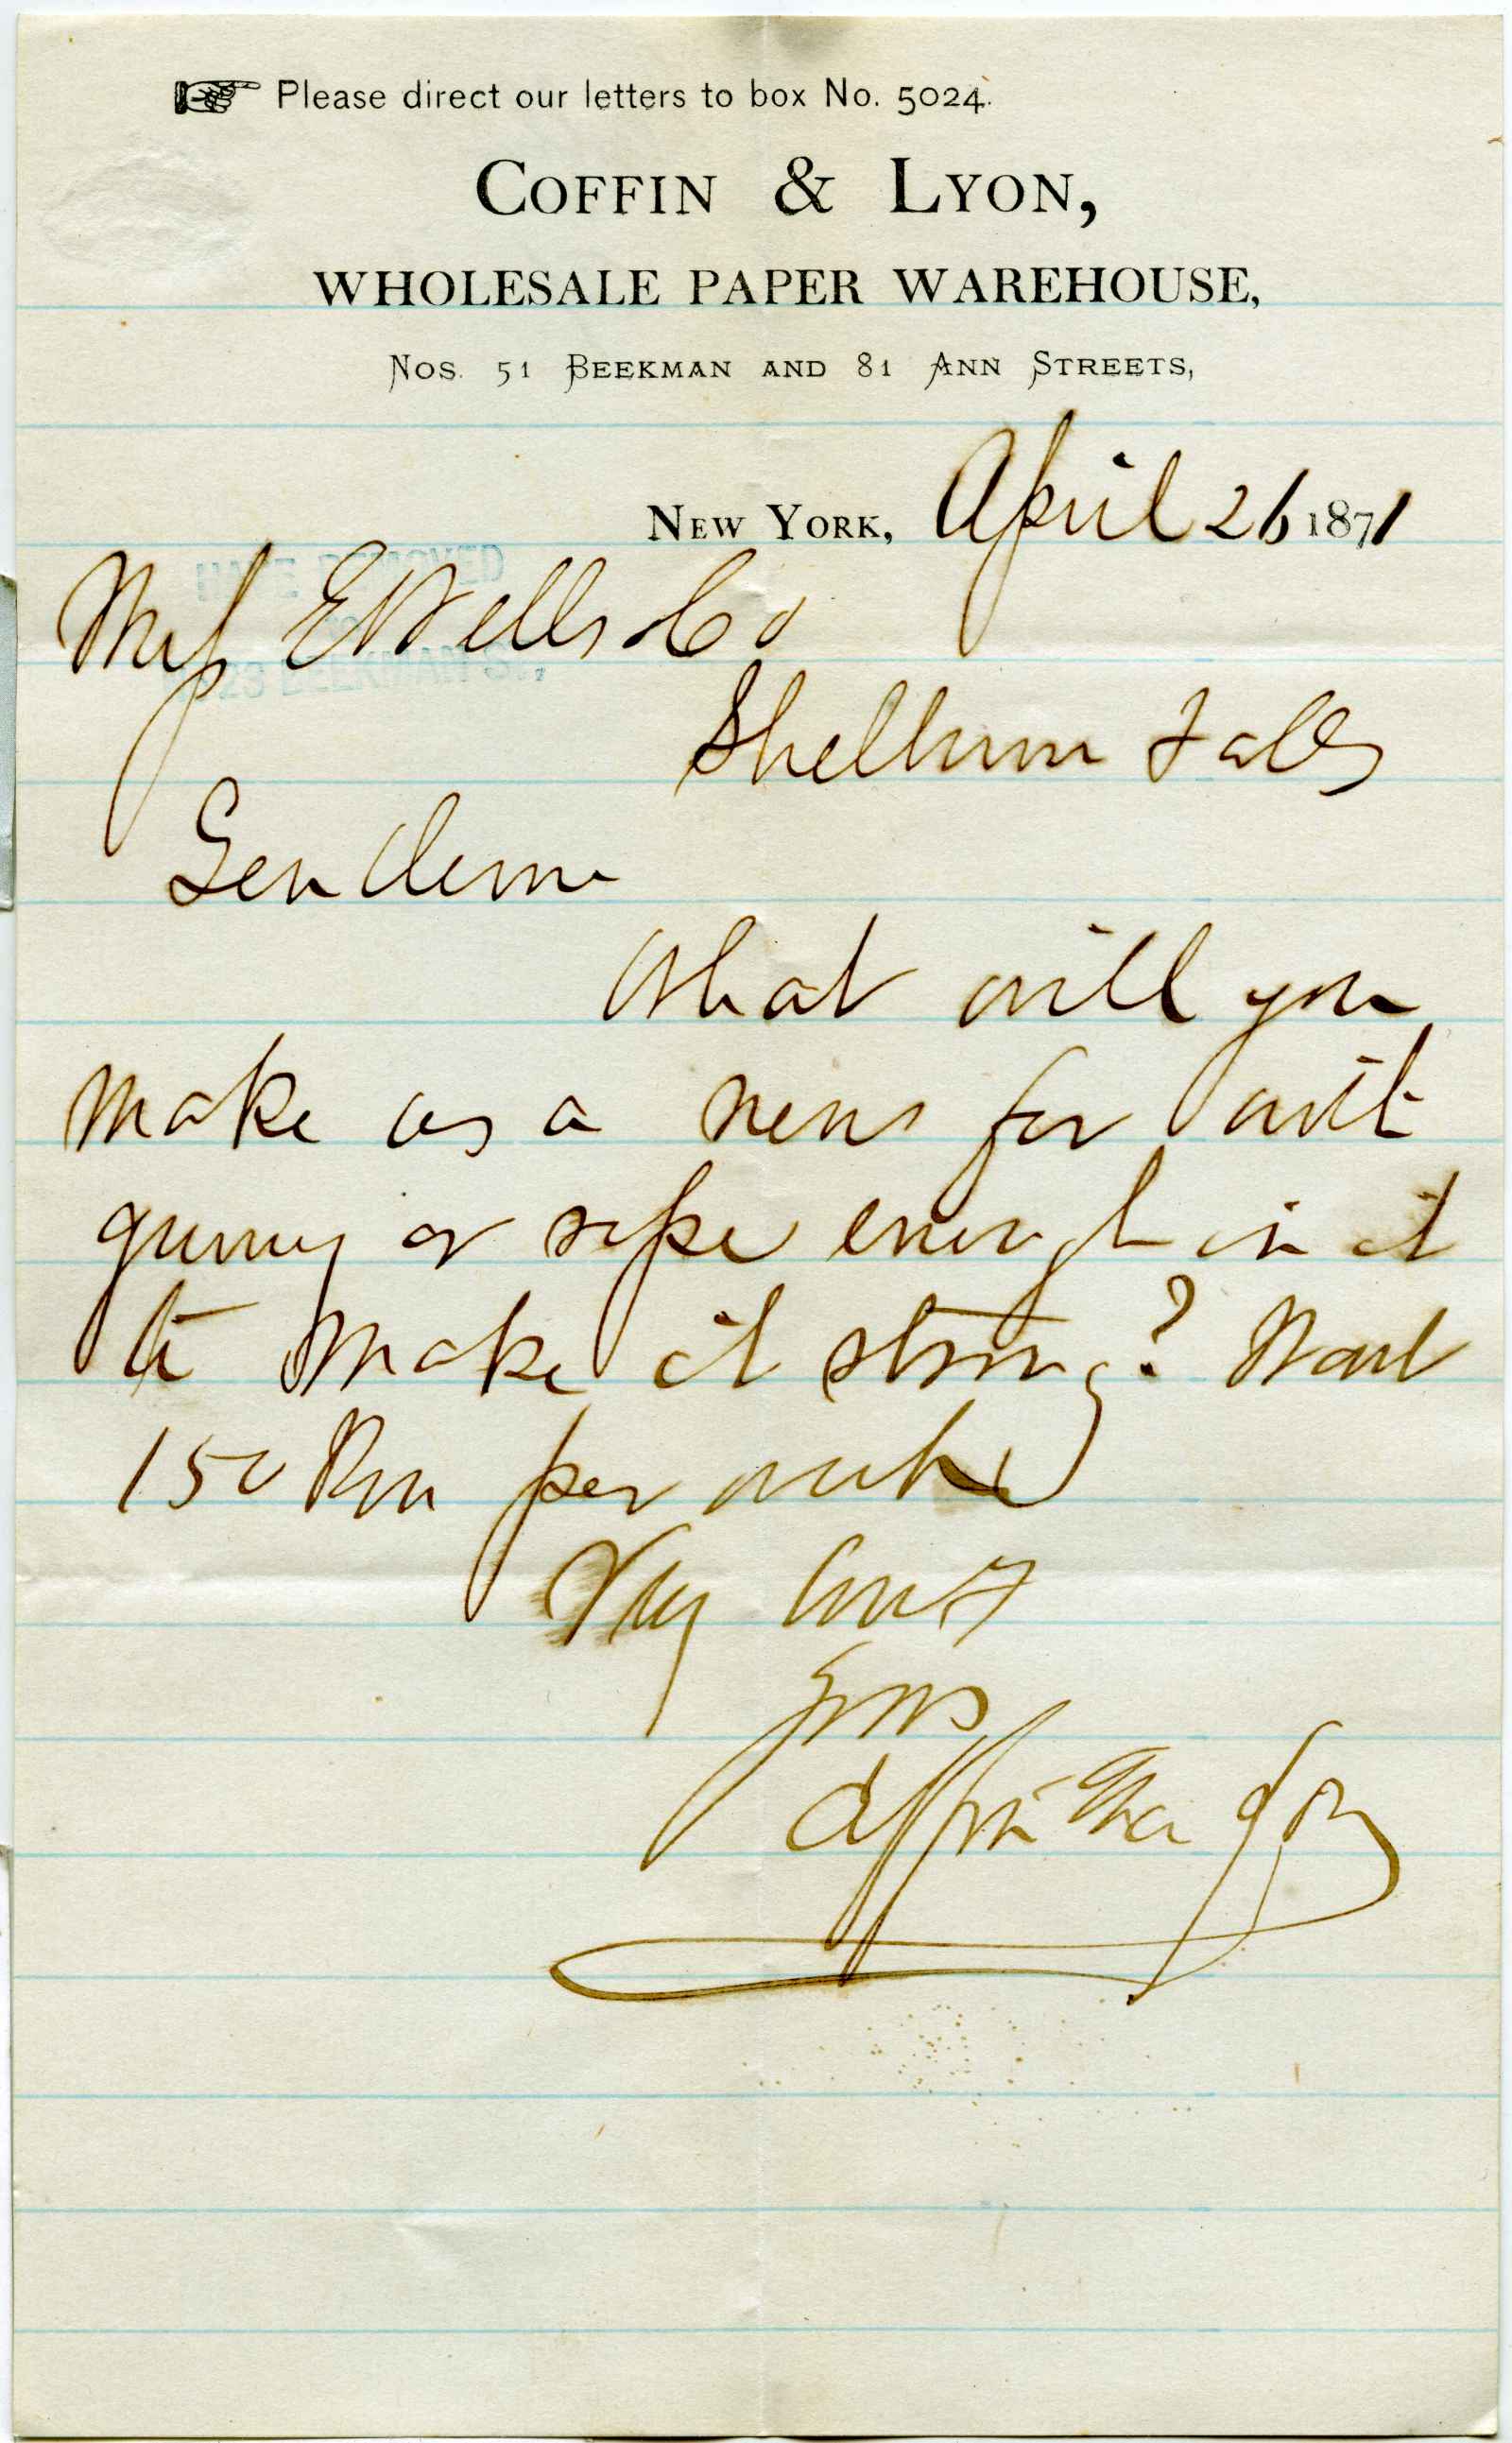 Please direct our letters to box No. 5024.
COFFIN & LYON,
WHOLESALE PAPER WAREHOUSE,
NOS. 51 BEEKMAN AND 81 ANN STREETS,
NEW YORK, April 26 1871
HAVE REMOVED
TO
23 BEEKMAN ST.,
Mess E Wells & Co
Shelburne Falls
Gentlemen
What will you
make us a news for with
gunny or rope enough in it
to make it strong? Want
150 Rm per week
Very
Yours
Coffin & Lyon